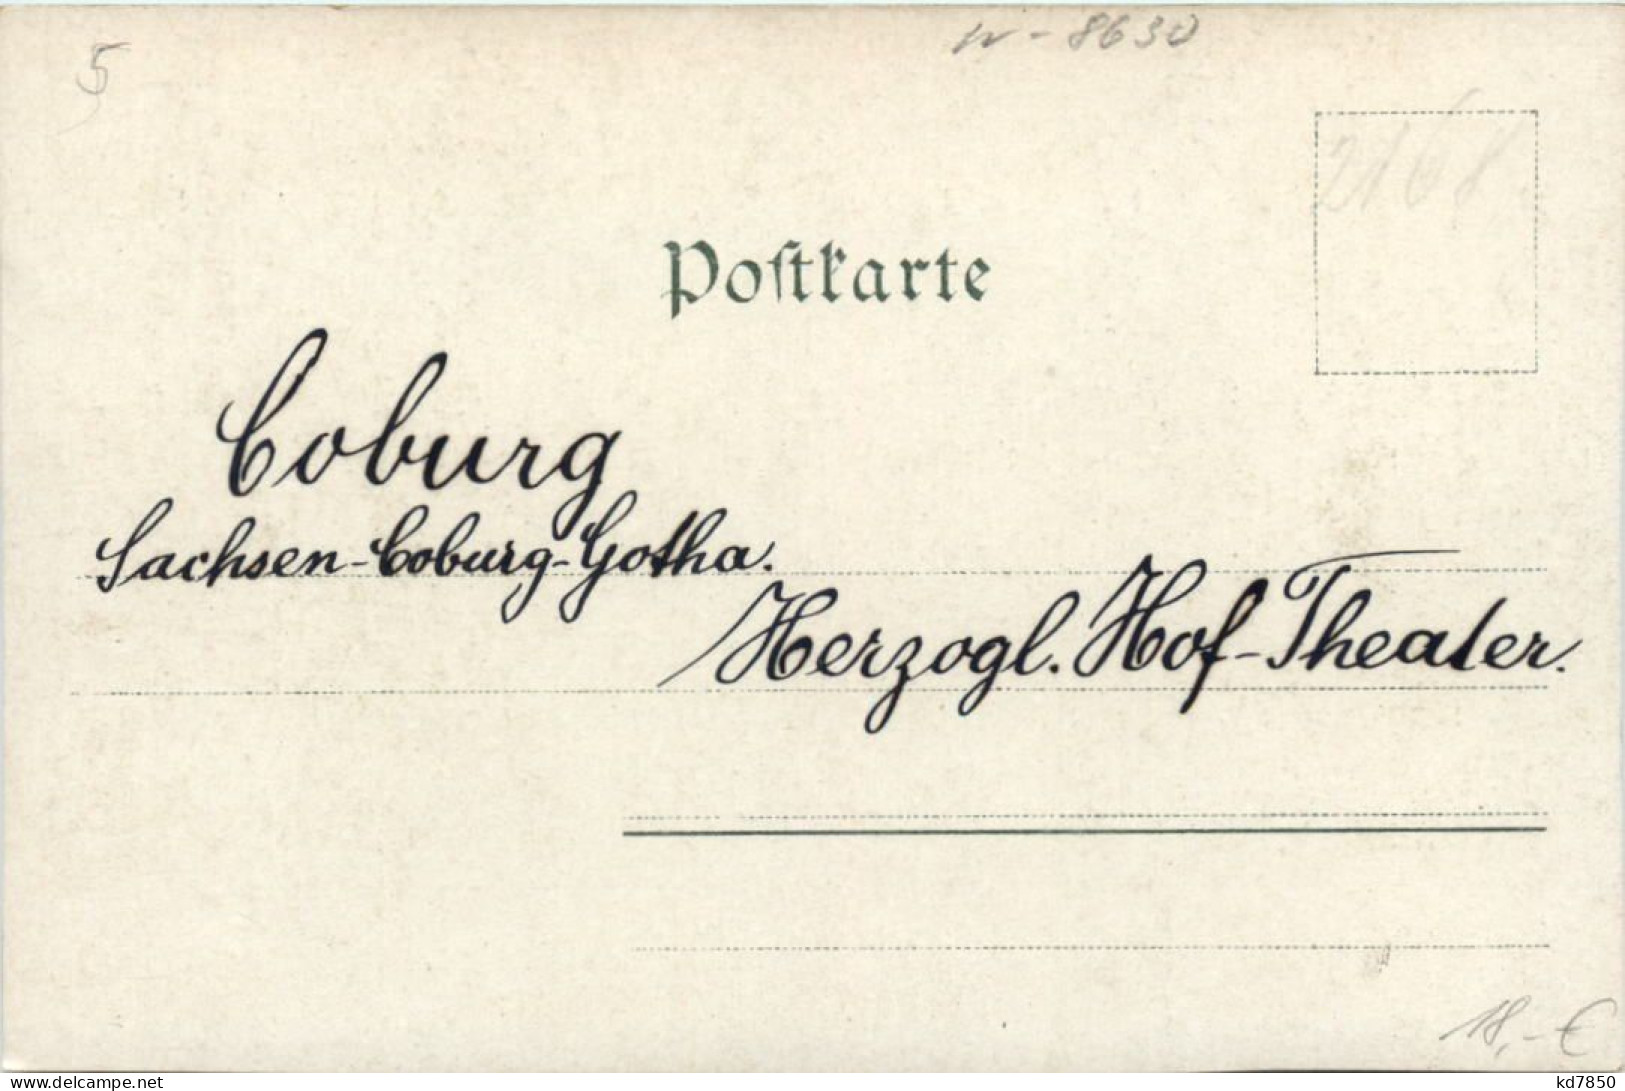 W-8630
5
Poſtkarte
Coburg
Sachsen-Coburg-Gotha.
Herzogl. Hof-Theater.
18,-€
www.delcampe.net
kd7850